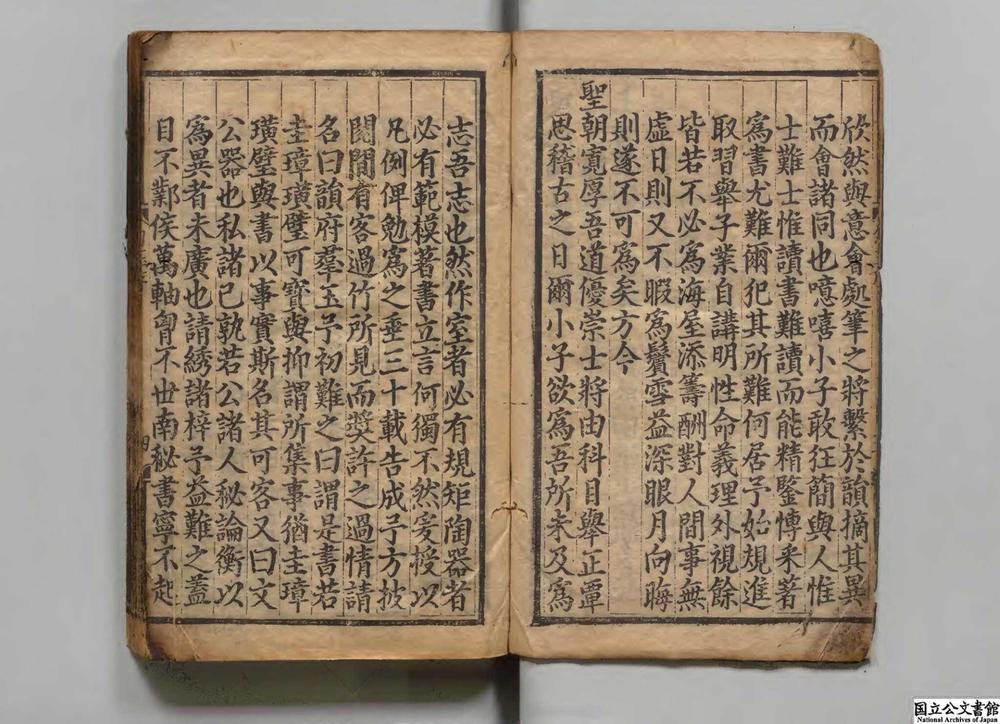 欣然與意會處筆之將繫於韻摘其異
而會諸同也噫嘻小子敢狂簡與人惟
士難士惟讀書難讀而能精鑒博采著
爲書尤難爾犯其所難何居予始規進
取習舉子業自講明性命義理外視餘
皆若不必爲海屋添籌酬對人間事無
虛日則又不暇爲鬢雪益深眼月向晦
則遂不可爲矣方今
聖朝寬厚吾道優崇士將由科目舉正覃
思稽古之日爾小子欲爲吾所未及爲
志吾志也然作室者必有規矩陶器者
必有範模著書立言何獨不然爰授以
凡例俾勉爲之垂三十載告成予方披
閱間有客過竹所見而奬許之過情請
名曰韻府羣玉予初難之曰謂是書若
圭璋璜璧可寶與抑謂所集事猶圭璋
璜璧與書以事實斯名其可客又曰文
公器也私諸己孰若公諸人秘論衡以
爲異者未廣也請綉諸梓予益難之蓋
目不鄴侯萬軸胷不世南秘書寧不起
国立公文書館
National Archives of Japan